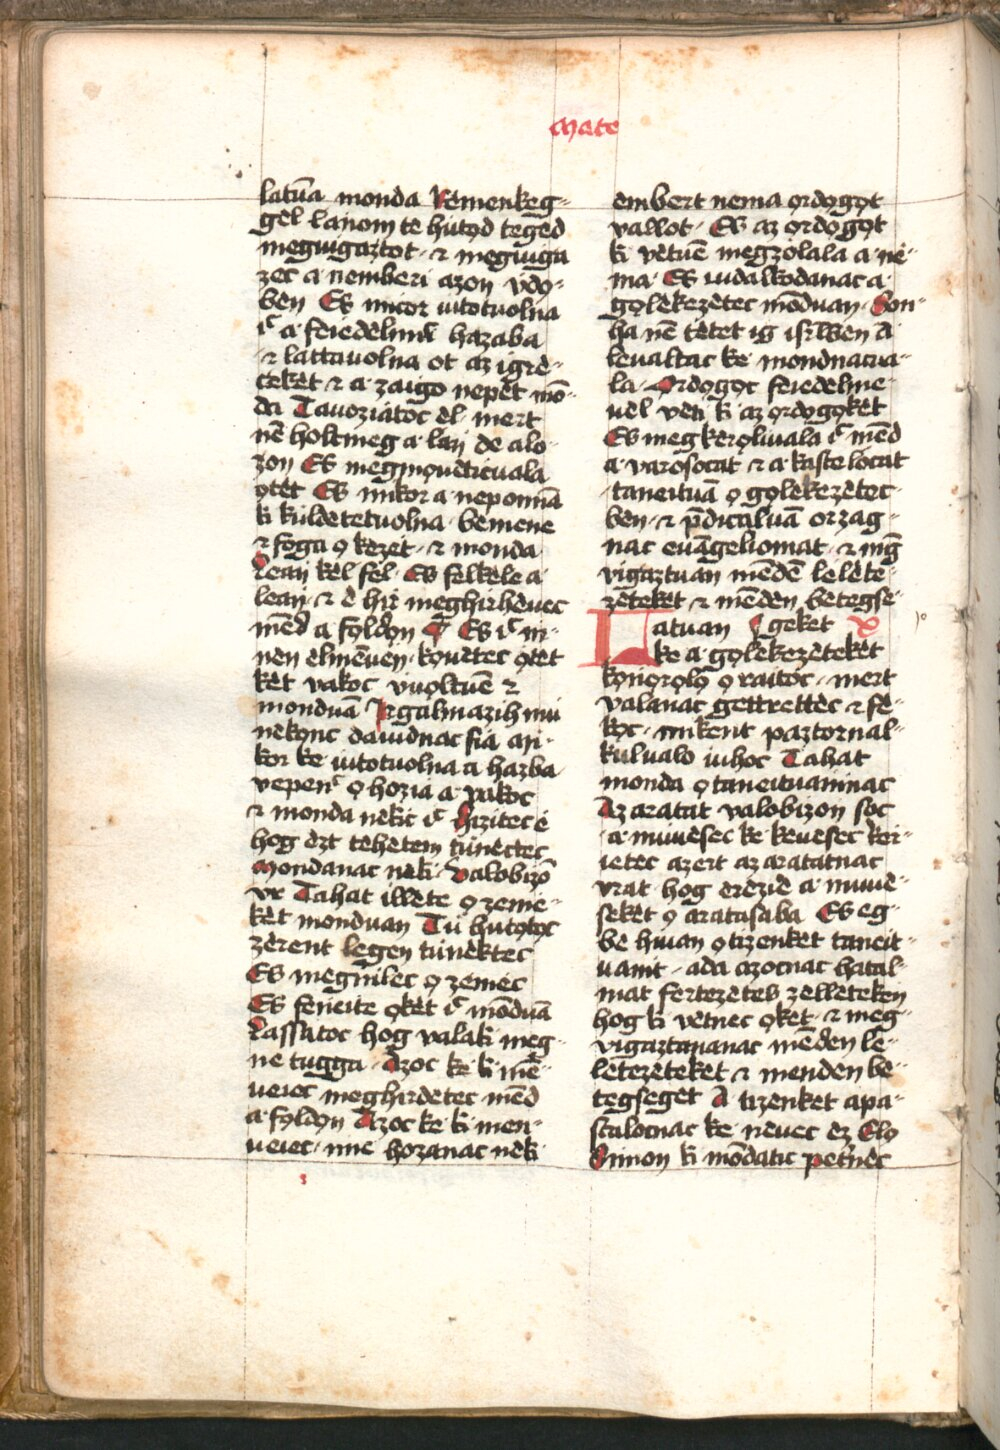 Mate
latua monda Remenkeg-
gel lanom te hutod teged
meguigaztot · ⁊ meguigu
zec a nemberi azon ydo-
ben Es micor iutotuolna
ic a feiedelmnc hazaba
⁊ lattauolna ot az igrē-
ceket ⁊ a zaigo nepèt mō-
da Tauoziatoc èl mert
nē holt meg a lan de alo-
zon Es megmouèticuala
otèt Es mikor a neponnā
ki kuldètetuolna bemene
⁊ foga o kezèt · ⁊ monda
Lean kèl fèl · Es felkèle a
lean · ⁊ ē hir meghirhèuec
mēd a foldon Es ic in-
nen elmènuen · kouetec otèt
kèt vakoc vuoltuē ⁊
monduā Irgalmazih mu
nekonc dauidnac fia an-
kor ke iutotuolna a hazba
vepenc o hozia a vakoc
⁊ monda nekic ic Hizitec ē
hog ezt tehetem tunectec
Mondanac nèki · Valobizō
vr Tahat illète o zeme-
kèt monduan Tu hutotoc
zèrent legen tunektec
Es megnilec o zemec
Es feneite okèt ic mōduā
Lassatoc hog valaki meg-
ne tugga · Azoc ke ki mē-
ueiec meghirdètec mēd
a foldon Azoc ke ki men-
ueiec · ime hozanac nèki
embert nema ordogot
vallot · Es az ordogot
ki vètuē megzolala a nè-
ma · Es tudalkodanac a
golèkezètec mōduan · Son-
ha nē tètet ig isrlben A
leualtac ke mondnacua-
la · Ordogoc feiedelme-
uèl vèti ki az ordogokèt
Es megkèroluala ic mēd
a varosocat ⁊ a kastelocat
taneituā o golèkezètec-
ben · ⁊ pdicaluā orzag-
nac euāgeliomat · ⁊ mēg
vigaztuan mēdē lelète-
zèteket ⁊ mēden betegse-
atuan geket x
ke a golèkezèteket
koniorolō o raitoc · mert
valanac gettrettèc ⁊ fè-
koc · mikent paztornal-
kulualo iuhoc Tahat
monda o taneituaninac
Az aratat valobizon soc
· a muuesec ke keuesec kèr-
ietec azert az aratatnac
vrat hog erezie a muue-
sekèt o aratasaba Es eg-
be hiuan o tizenket taneit-
uanit · ada azocnac hatal-
mat fertezètes zèllètekèn
hog ki vètnec okèt · ⁊ meg-
vigaztananac mēden le-
lètezètekèt ⁊ menden be-
tegseget A tizenket apa-
stalocnac ke nèuec èz Elo
Simon ki mōdatic petnèc